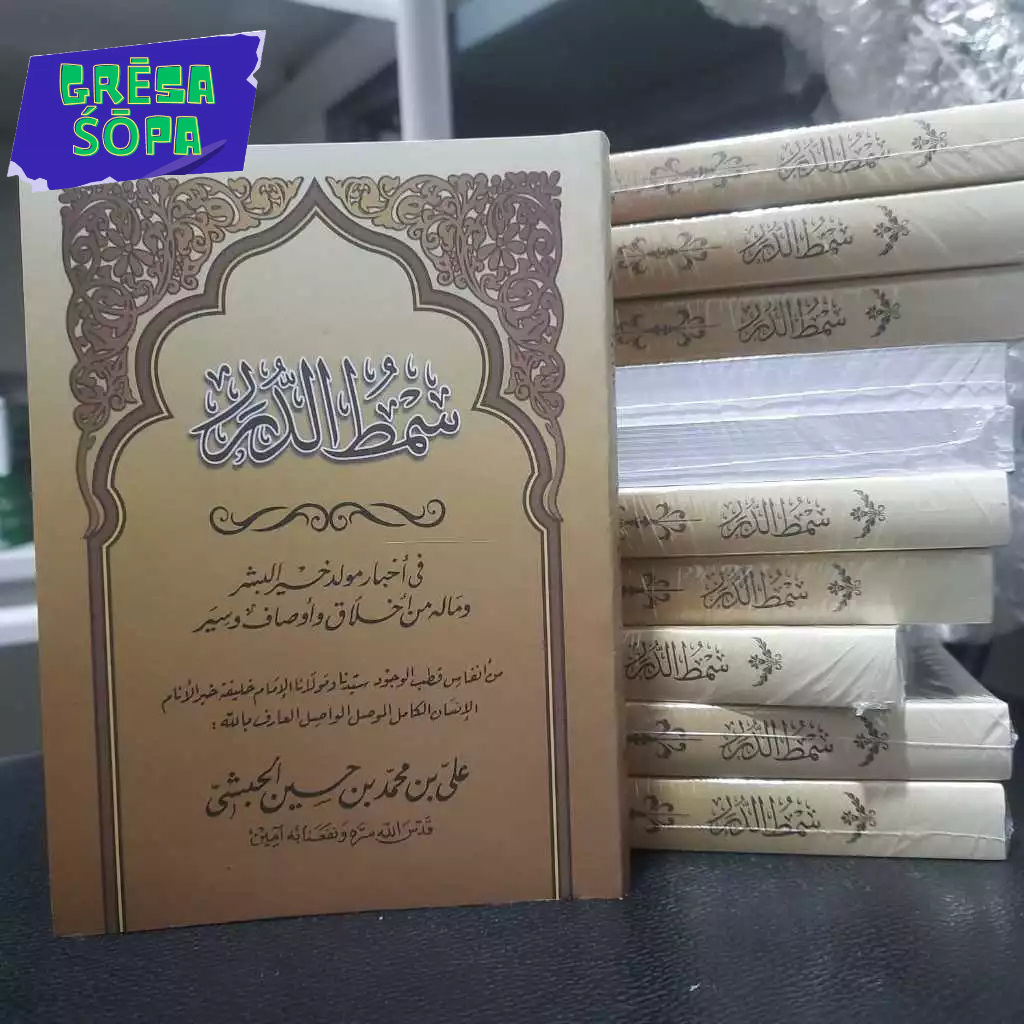 GRĒSA
ŚŌPA
سِمْطُ الدُّرَرِ
في أخبار مولد خير البشر
وماله من أخلاق وأوصاف وسير
من أنفاس قطب الوجود سيدنا ومولانا الإمام خليفة خير الأنام
الإنسان الكامل الموصل الواصل العارف بالله :
علي بن محمد بن حسين الحبشي
قدس الله سره ونفعنا به آمين
سمط الدرر
سمط الدرر
سمط الدرر
سمط الدرر
سمط الدرر
سمط الدرر
سمط الدرر
سمط الدرر